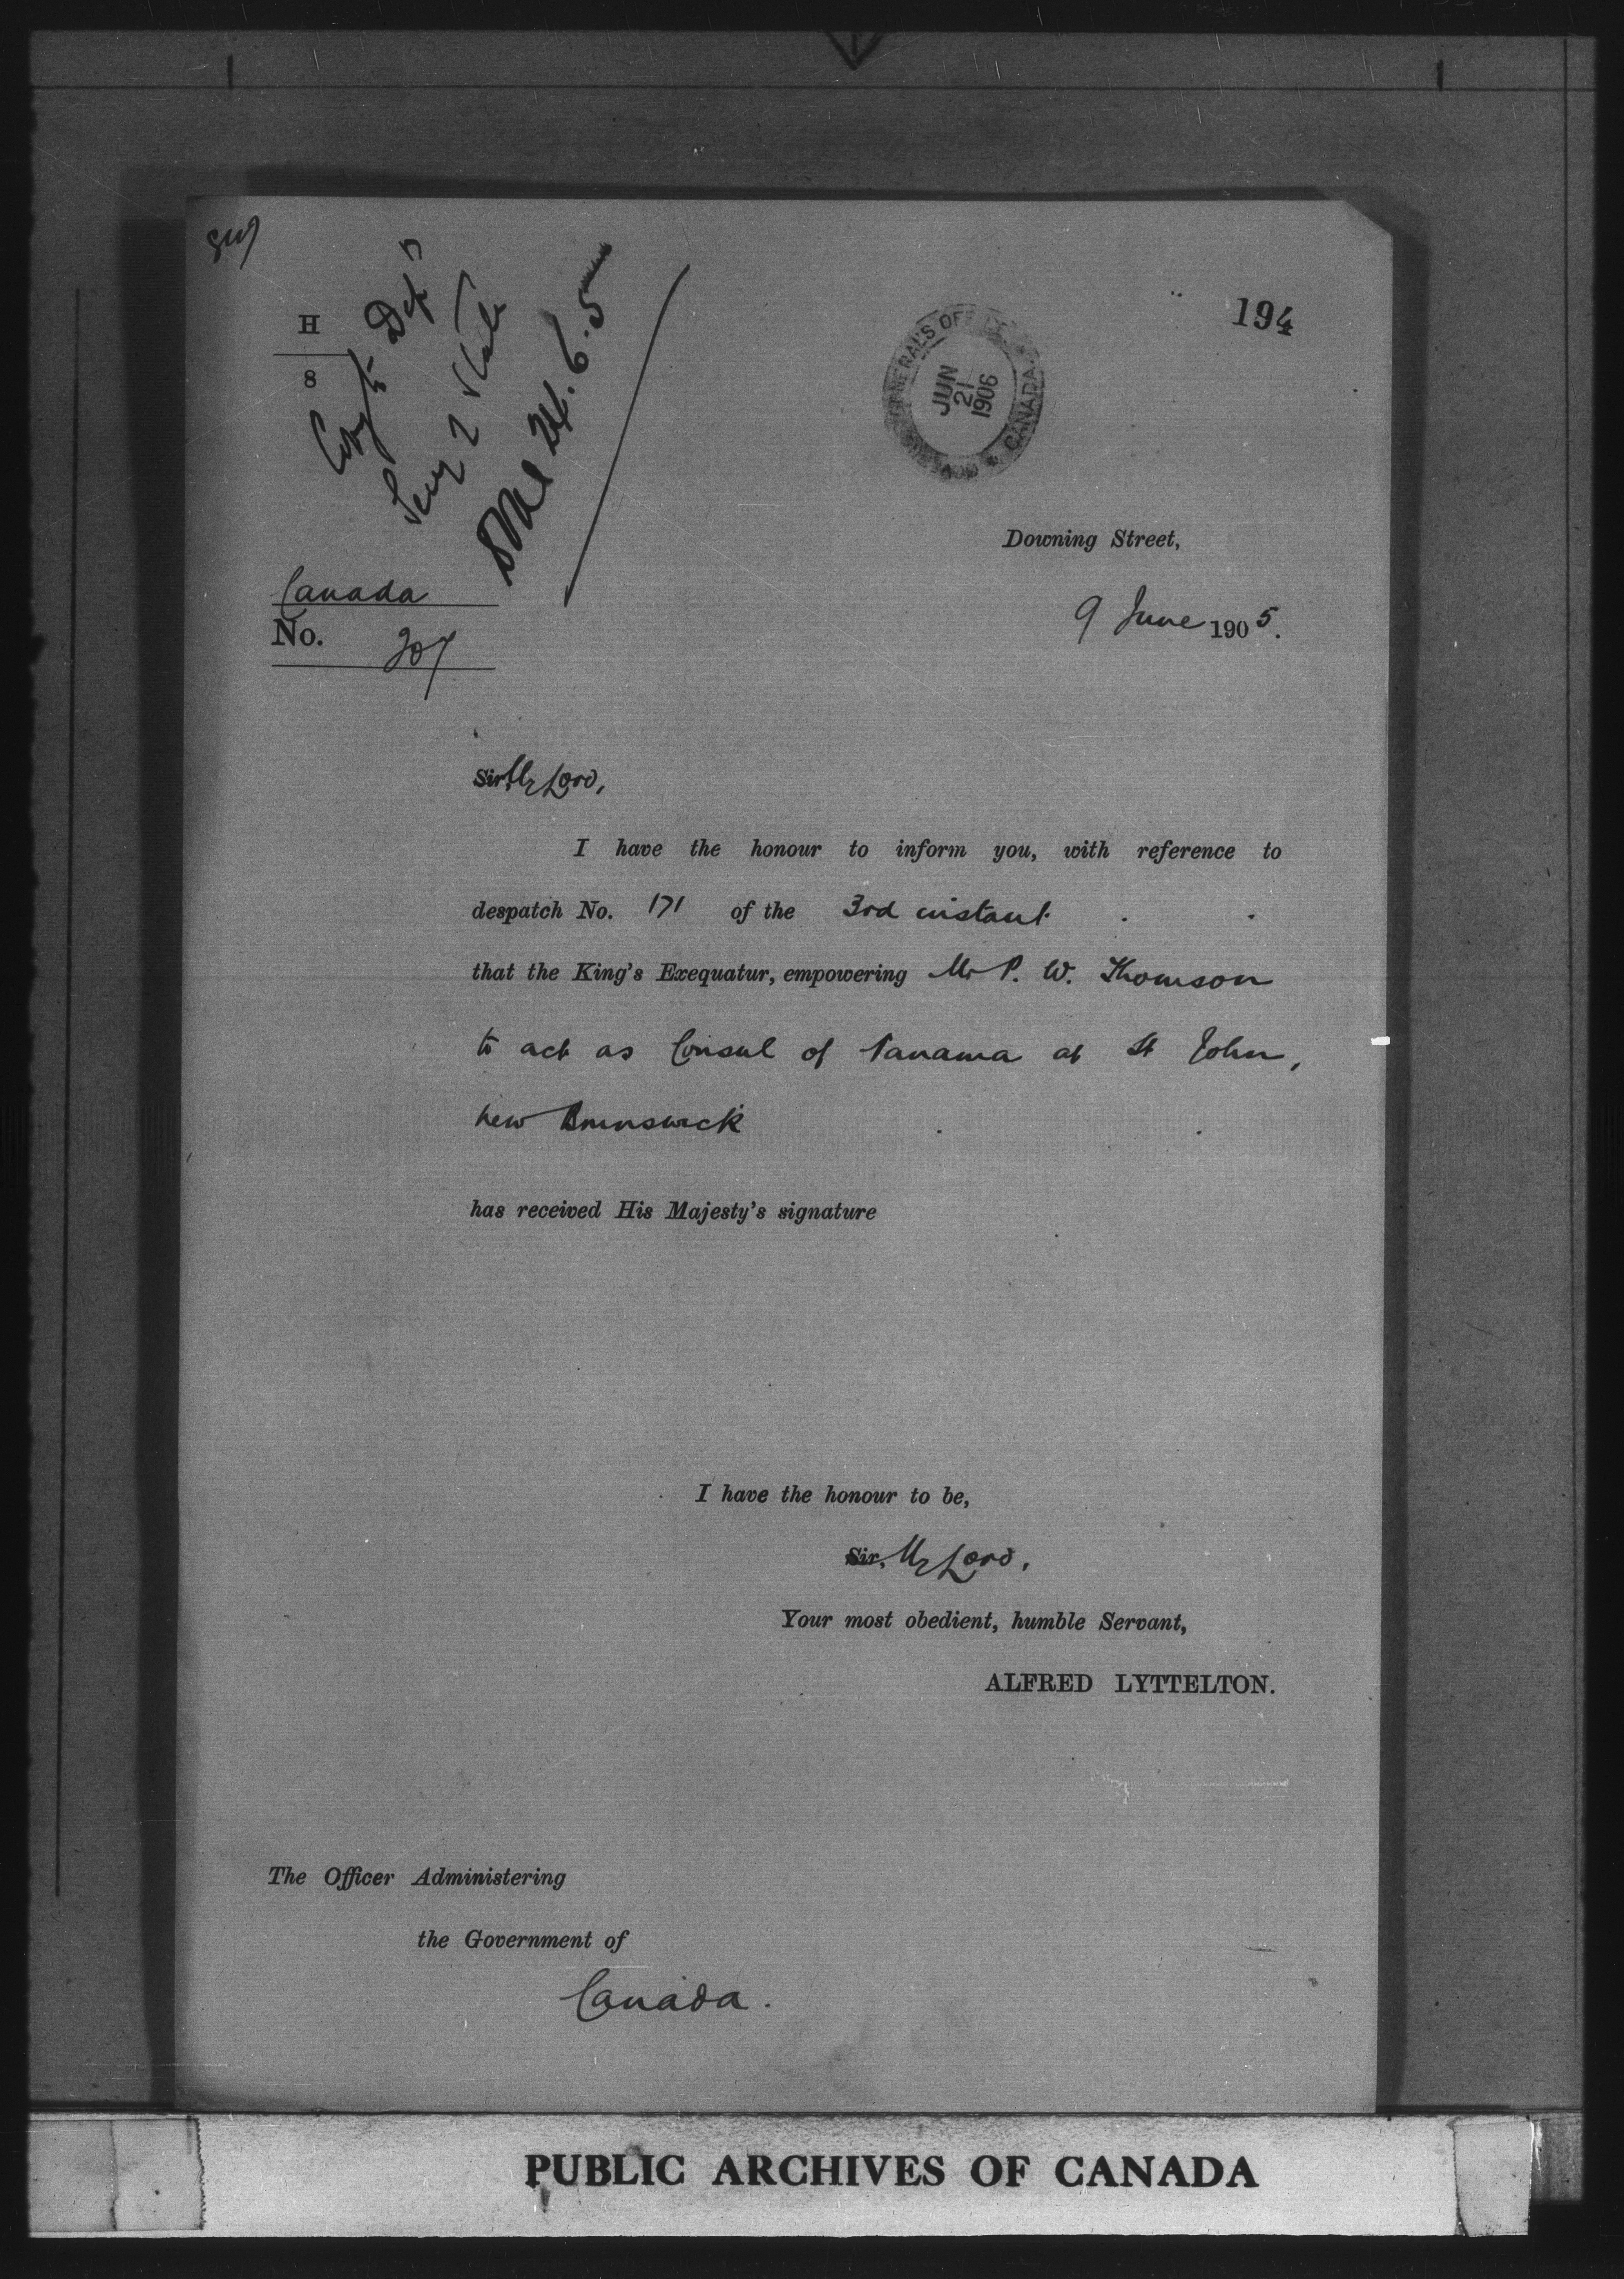 194
H
8
Copy to Dep^n
Secy of State
24.6.5
GOVERNOR GENERAL'S OFFICE
JUN
21
1906
CANADA
Downing Street,
Canada
9 June 1905.
No. 207
Sir, My Lord,
I have the honour to inform you, with reference to
despatch No. 171 of the 3rd instant
that the King's Exequatur, empowering Mr P. W. Thomson
to act as Consul of Panama at St John,
New Brunswick
has received His Majesty's signature
I have the honour to be,
Sir, My Lord,
Your most obedient, humble Servant,
ALFRED LYTTELTON.
The Officer Administering
the Government of
Canada.
PUBLIC ARCHIVES OF CANADA